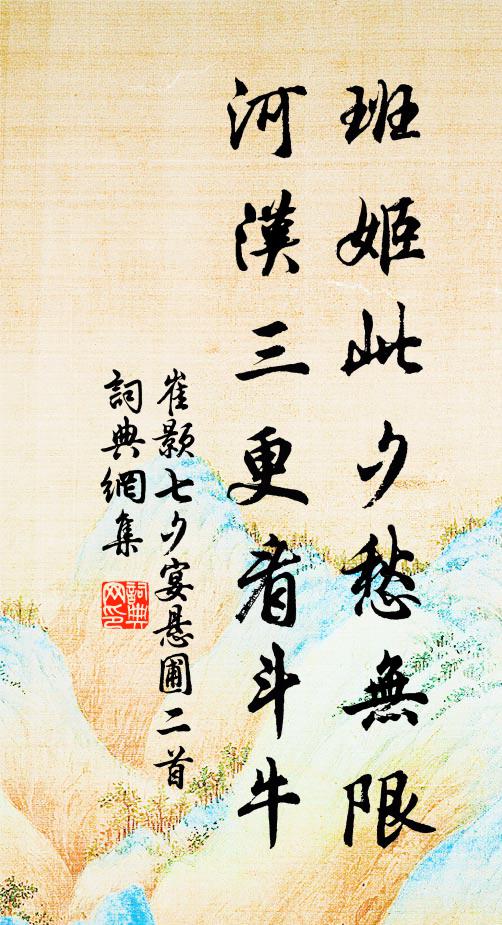 班姬此夕愁無限
河漢三更看斗牛
崔顥七夕宴懸圃二首
詞典網集
詞典網印